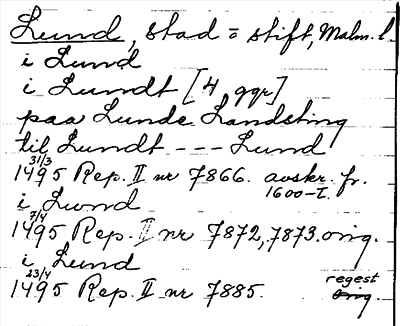 Lund, stad = stift, Malm. l.
i Lund
i Lundt [4 ggr]
paa Lunde Landsting
til Lundt --- Lund
31/3
1495 Rep. II nr 7866. avskr. fr. 1600-t.
i Lund
7/4
1495 Rep. II nr 7872, 7873. orig.
i Lund
23/4
1495 Rep. II nr 7885. regest